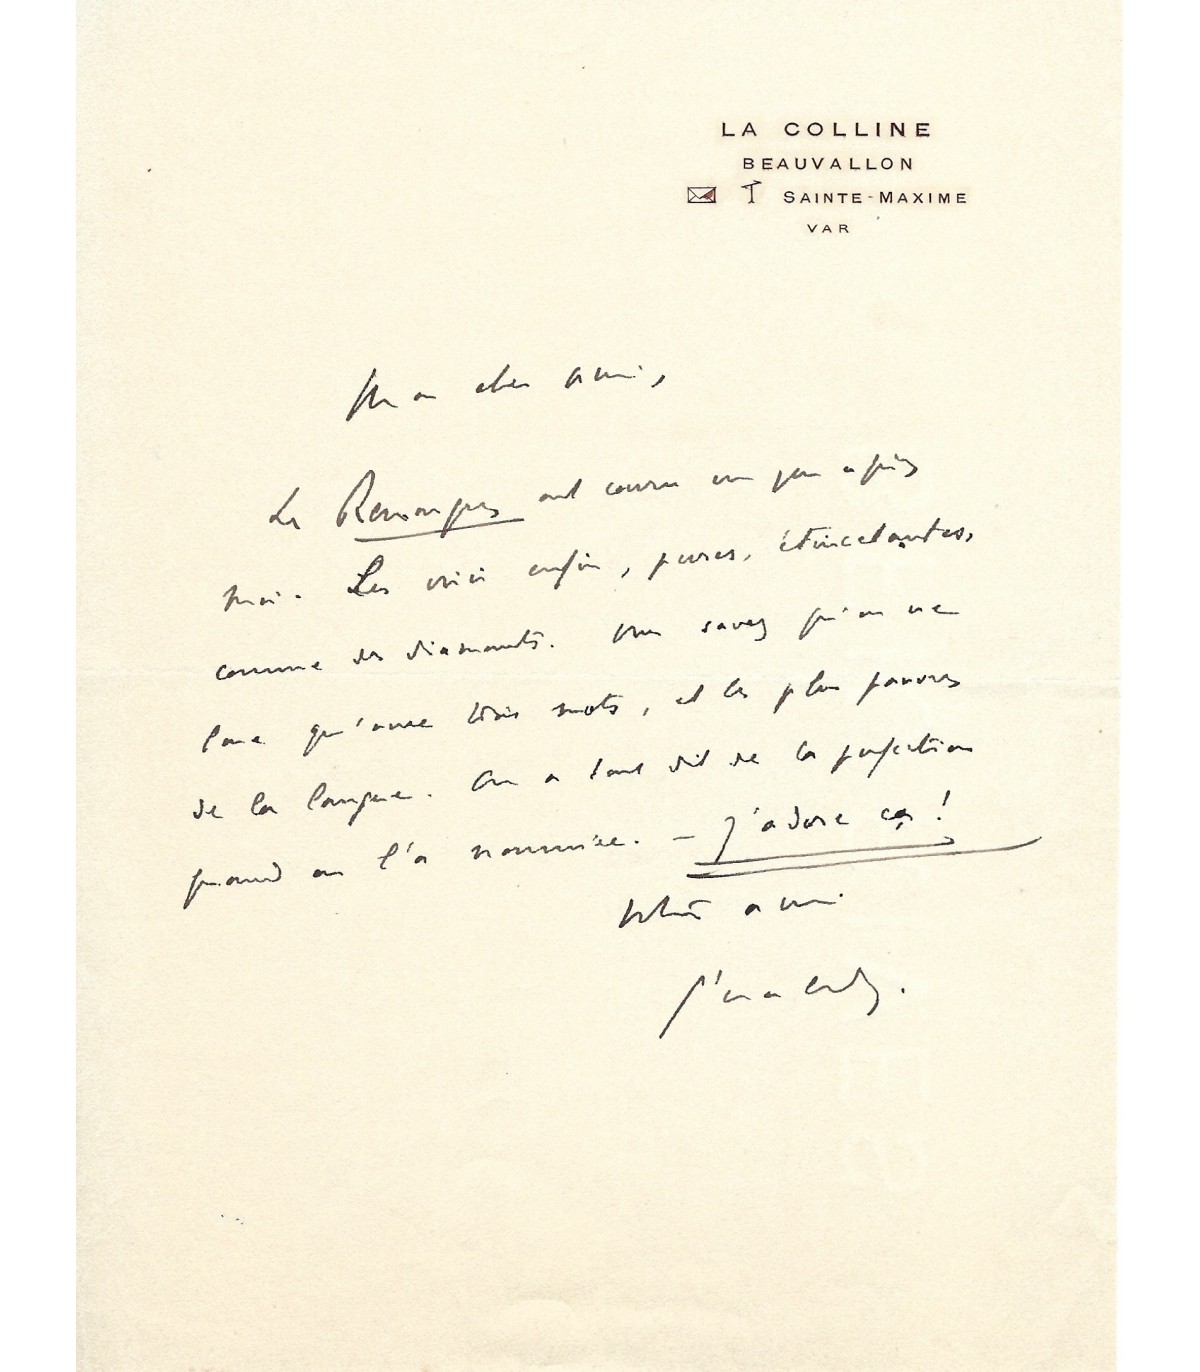 LA COLLINE
BEAUVALLON
SAINTE-MAXIME
VAR
Mon cher ami,
Les Remarques ont couru un peu après
moi. Les voici enfin, pures, étincelantes,
comme des diamants. Vous savez qu'on ne
loue qu'avec trois mots, et les plus pauvres
de la langue. On a tout dit de la perfection
quand on l'a nommée. — J'adore ça !
Votre ami